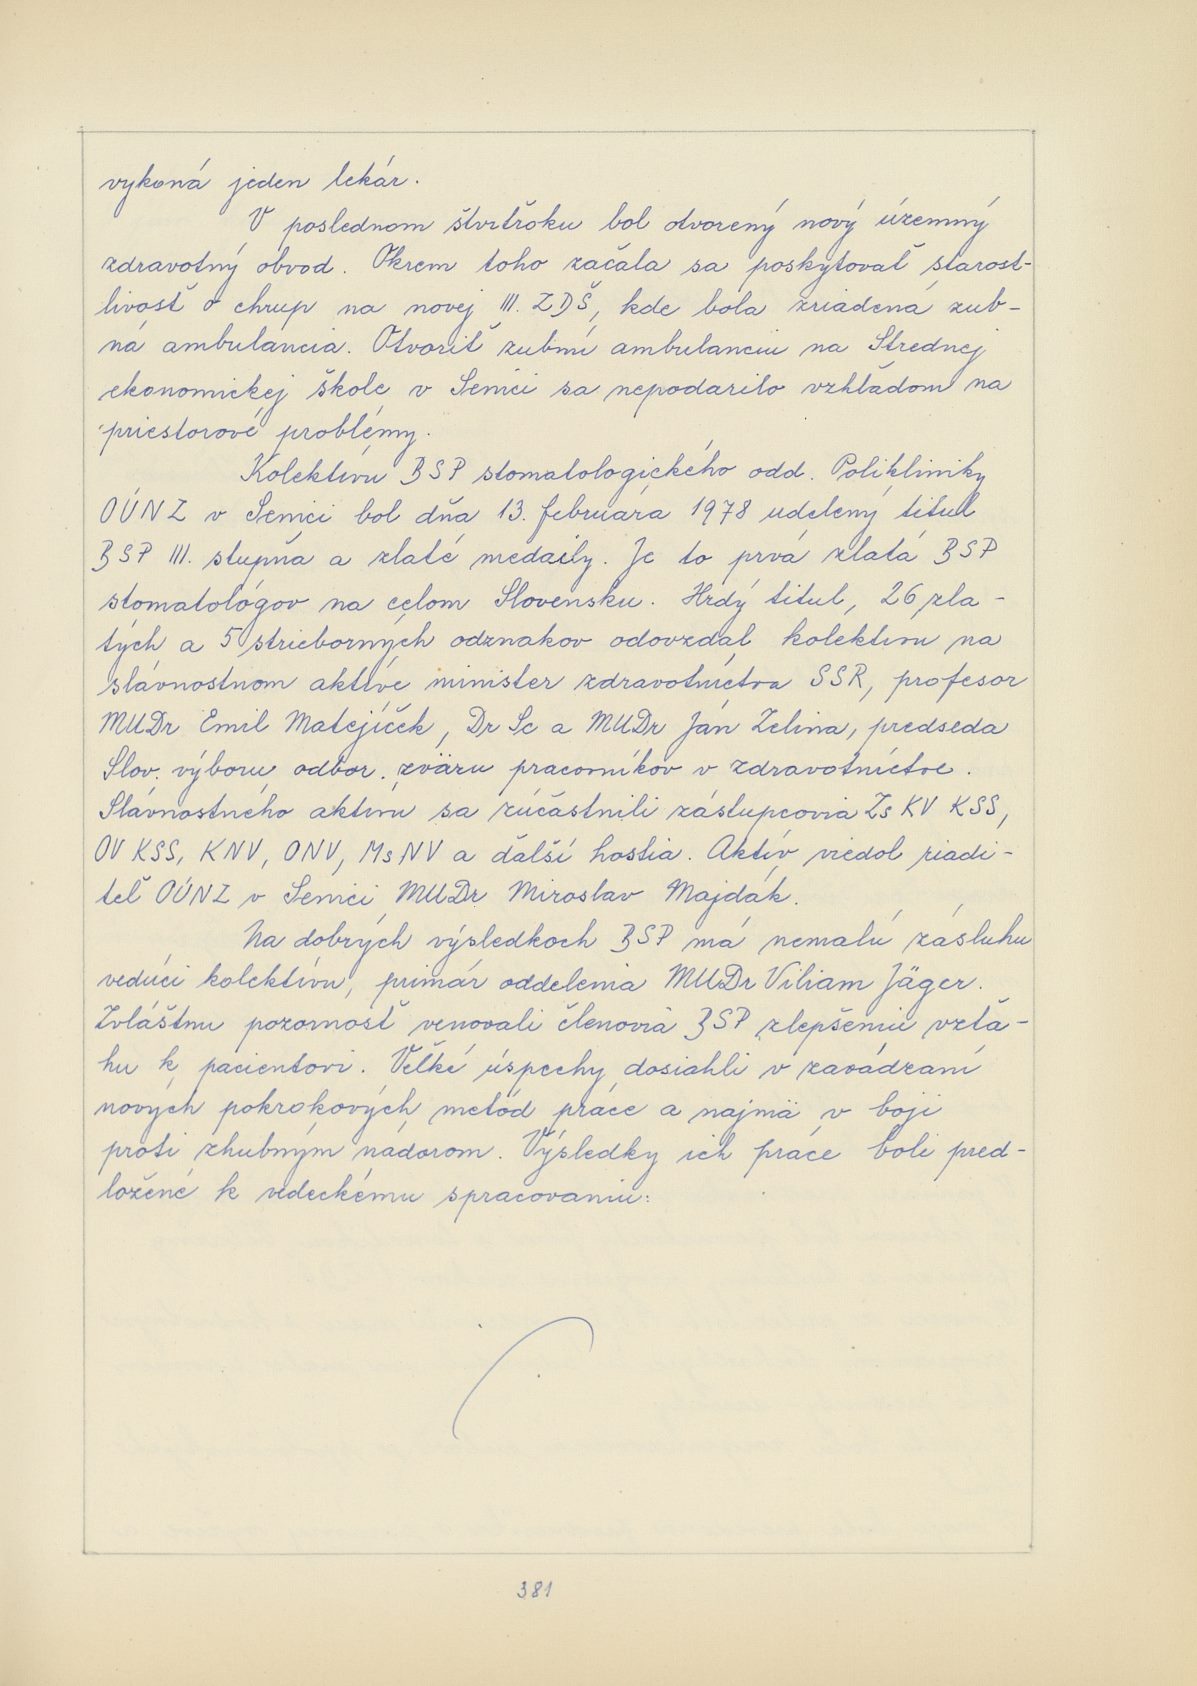 vykoná jeden lekár.
V poslednom štvrťroku bol otvorený nový územný
zdravotný obvod. Okrem toho začala sa poskytovať starost-
livosť o chrup na novej III. ZDŠ, kde bola zriadená zub-
ná ambulancia. Otvoriť zubnú ambulanciu na Strednej
ekonomickej škole v Senici sa nepodarilo vzhľadom na
priestorové problémy.
Kolektívu BSP stomatologického odd. Polikliniky
OÚNZ v Senici bol dňa 13. februára 1978 udelený titul
BSP III. stupňa a zlaté medaily. Je to prvá zlatá BSP
stomatológov na celom Slovensku. Hrdý titul, 26 zla-
tých a 5 strieborných odznakov odovzdal kolektívu na
slávnostnom aktíve minister zdravotníctva SSR, profesor
MUDr Emil Matejíček, Dr Sc a MUDr Ján Zelina, predseda
Slov. výboru odbor. zväzu pracovníkov v zdravotníctve.
Slávnostného aktívu sa zúčastnili zástupcovia Zs KV KSS,
OV KSS, KNV, ONV, MsNV a ďalší hostia. Aktív viedol riadi-
teľ OÚNZ v Senici MUDr Miroslav Majdák.
Na dobrých výsledkoch BSP má nemalú zásluhu
vedúci kolektívu, primár oddelenia MUDr Viliam Jäger.
Zvláštnu pozornosť venovali členovia BSP zlepšeniu vzťa-
hu k pacientovi. Veľké úspechy dosiahli v zavádzaní
nových pokrokových metód práce a najmä v boji
proti zhubným nádorom. Výsledky ich práce boli pred-
ložené k vedeckému spracovaniu.
381